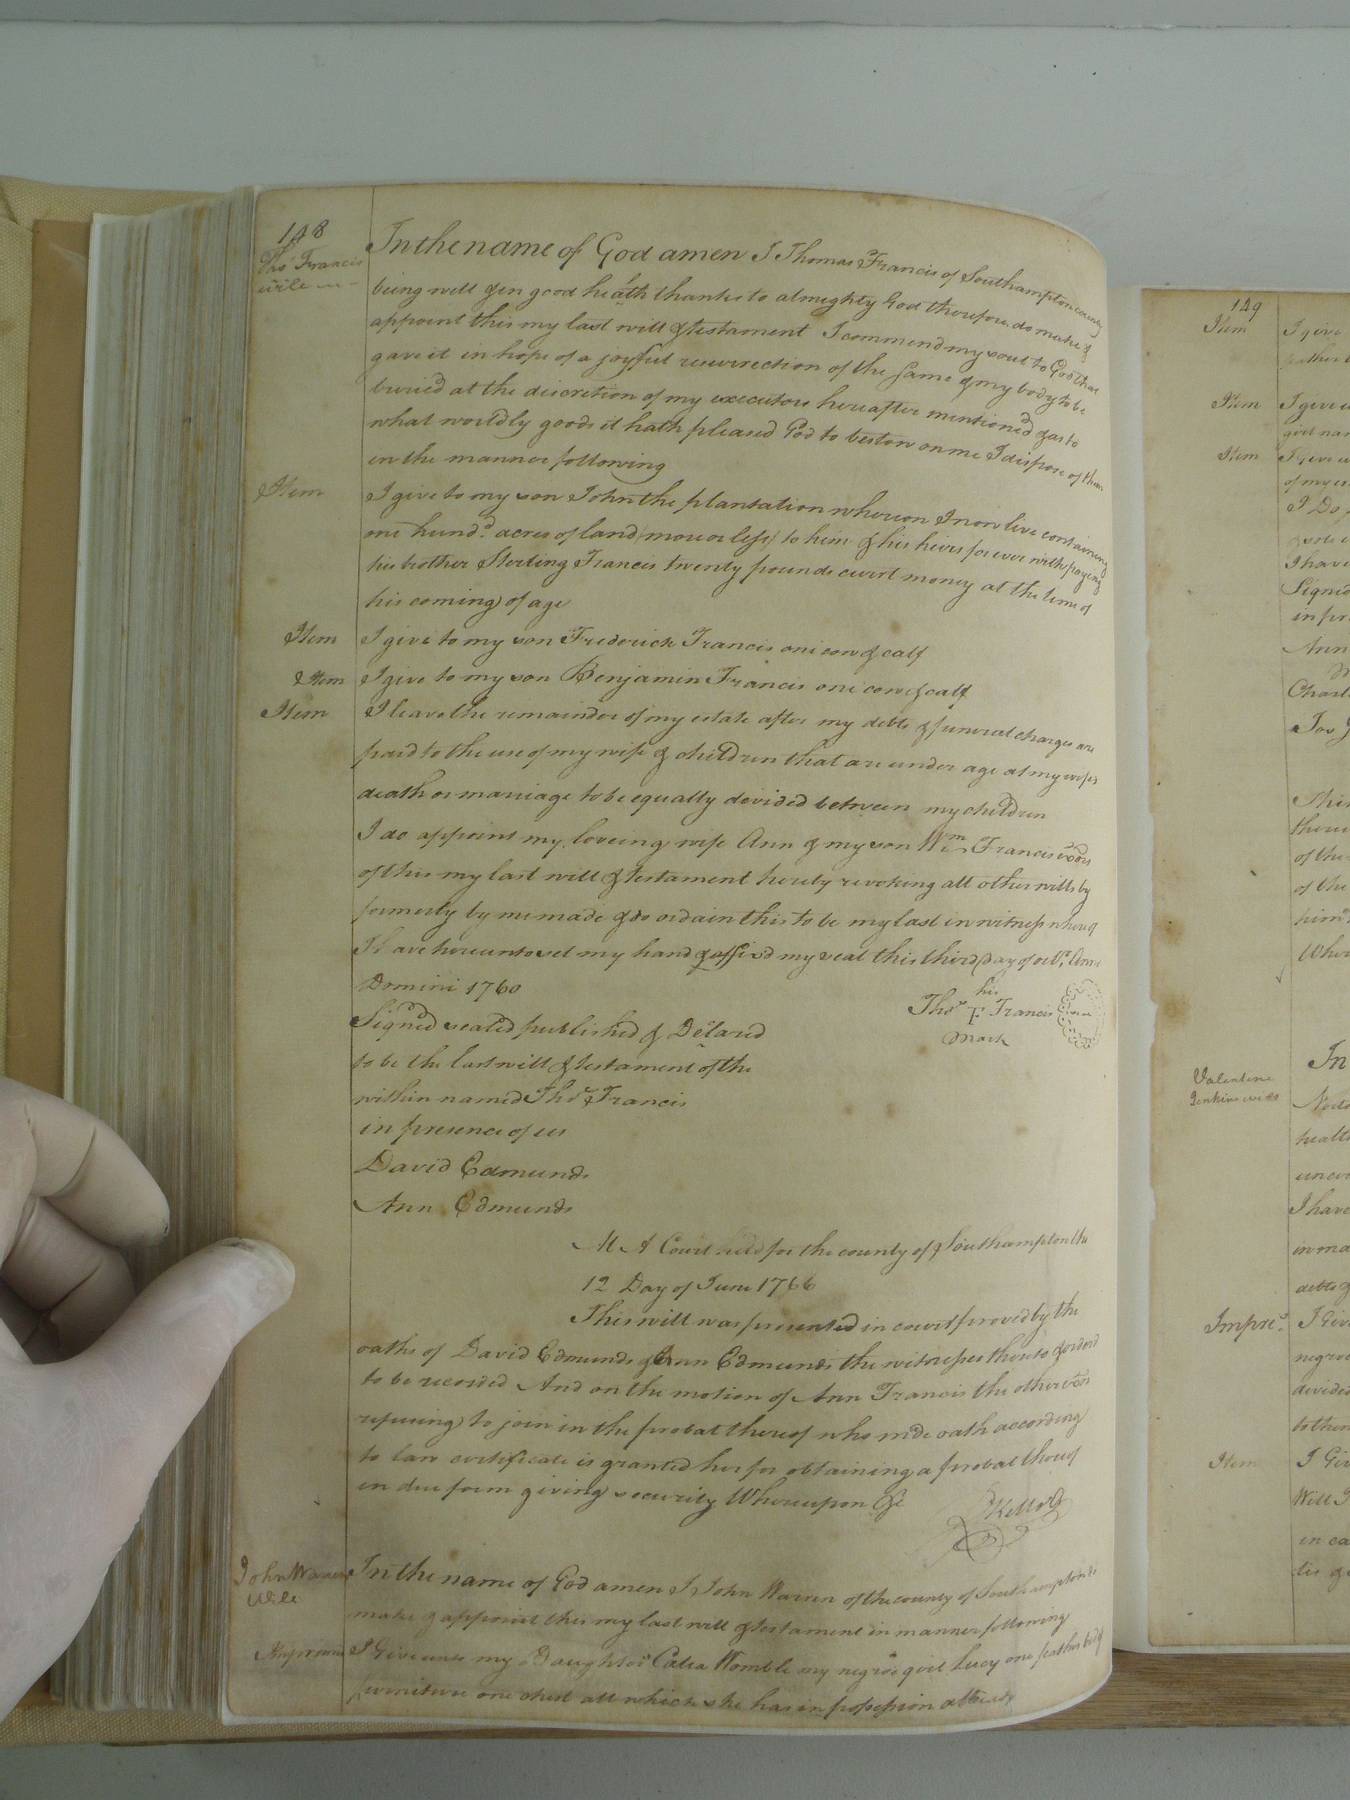 148
Thos Francis
wile
In the name of God amen I Thomas Francis of Southampton county
being well & in good heath thanks to almighty God therefore do make &
appoint this my last will & testament I commend my soul to God that
gave it in hope of a joyfful resurrection of the same & my body to be
buried at the discretion of my executors hereafter mentioned & as to
what worldly goods it hath pleased God to bestow on me I dispose of them
in the manner following
Item I give to my son John the plantation whereon I now live containing
one hundd acres of land (more or less) to him & his heirs for ever with paying
his bother Sterling Francis twenty pounds curt money at the time of
his coming of age
Item I give to my son Frederick Francis one cow & calf
Item I give to my son Benjamin Francis one cow & calf
Item I leave the remainder of my estate after my debts & funeral charges are
paid to the use of my wife & children that are under age at my wifes
death or marriage to be equally devided between my children
I do appoint my loveing wife Ann & my son Wm Francis exors
of this my last will & testament hereby revoking all other wills by
formerly by me made & do ordain this to be my last in witness whereof
I have hereunto set my hand & affixd my seal this third day of
Domini 1760
his
Thos T Francis
mark
Signed sealed published & Delared
to be the last will & testament of the
within named Thos Francis
in presence of us
David Edmunds
Ann Edmunds
At A Court held for the county of Southampton the
12 Day of June 1766
This will was presented in court proved by the
oaths of David Edmunds & Ann Edmunds the witnesses thereto & orderd
to be recorded And on the motion of Ann Francis the other exor
refusing to join in the probat thereof who made oath according
to law certificate is granted her for obtaining a probat thereof
in due form giving security Whereupon &c
Kello
John Warren
Wile
In the name of God amen I John Warren of the county of Southampton do
make & appoint this my last will & testament in manner following
I Give unto my Daughter Womble my negroe girl Lucy one feather bed &
furniture one chest all which she has in possession already
149
Item I give
Item I give
girl
Item I give
of my
I Do
I have
Signed
in pr
Ann
Charl
of the
of the
him
Wher
Valentine
Jenkins
In
healt
I have
in ma
debts
Impre I Giv
negro
divided
to them
Item I Giv
Will
in ca